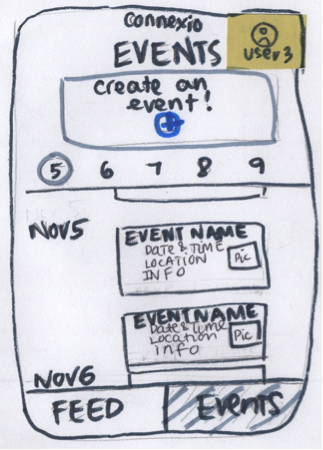 Connexio
EVENTS
user3
Create an
event!
+
5 6 7 8 9
NOV5
EVENT NAME
DATE & TIME
LOCATION
INFO
Pic
EVENT NAME
Date & time
Location
info
Pic
NOV6
FEED
Events